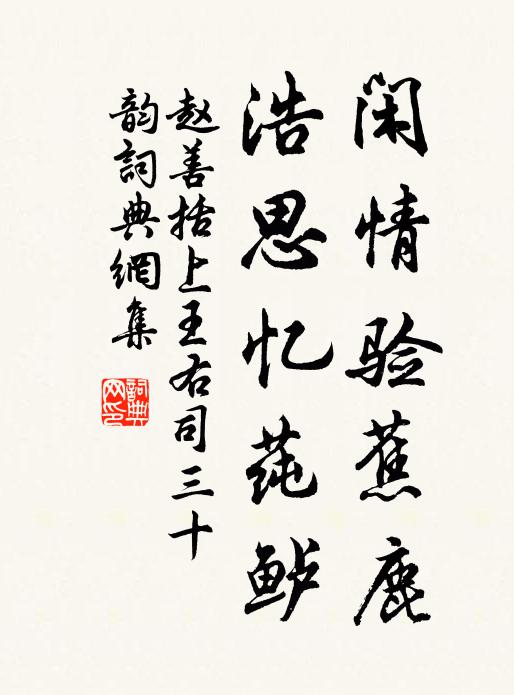 闲情验蕉鹿
浩思忆莼鲈
赵善括上王右司三十
韵詞典網集
詞典
网印